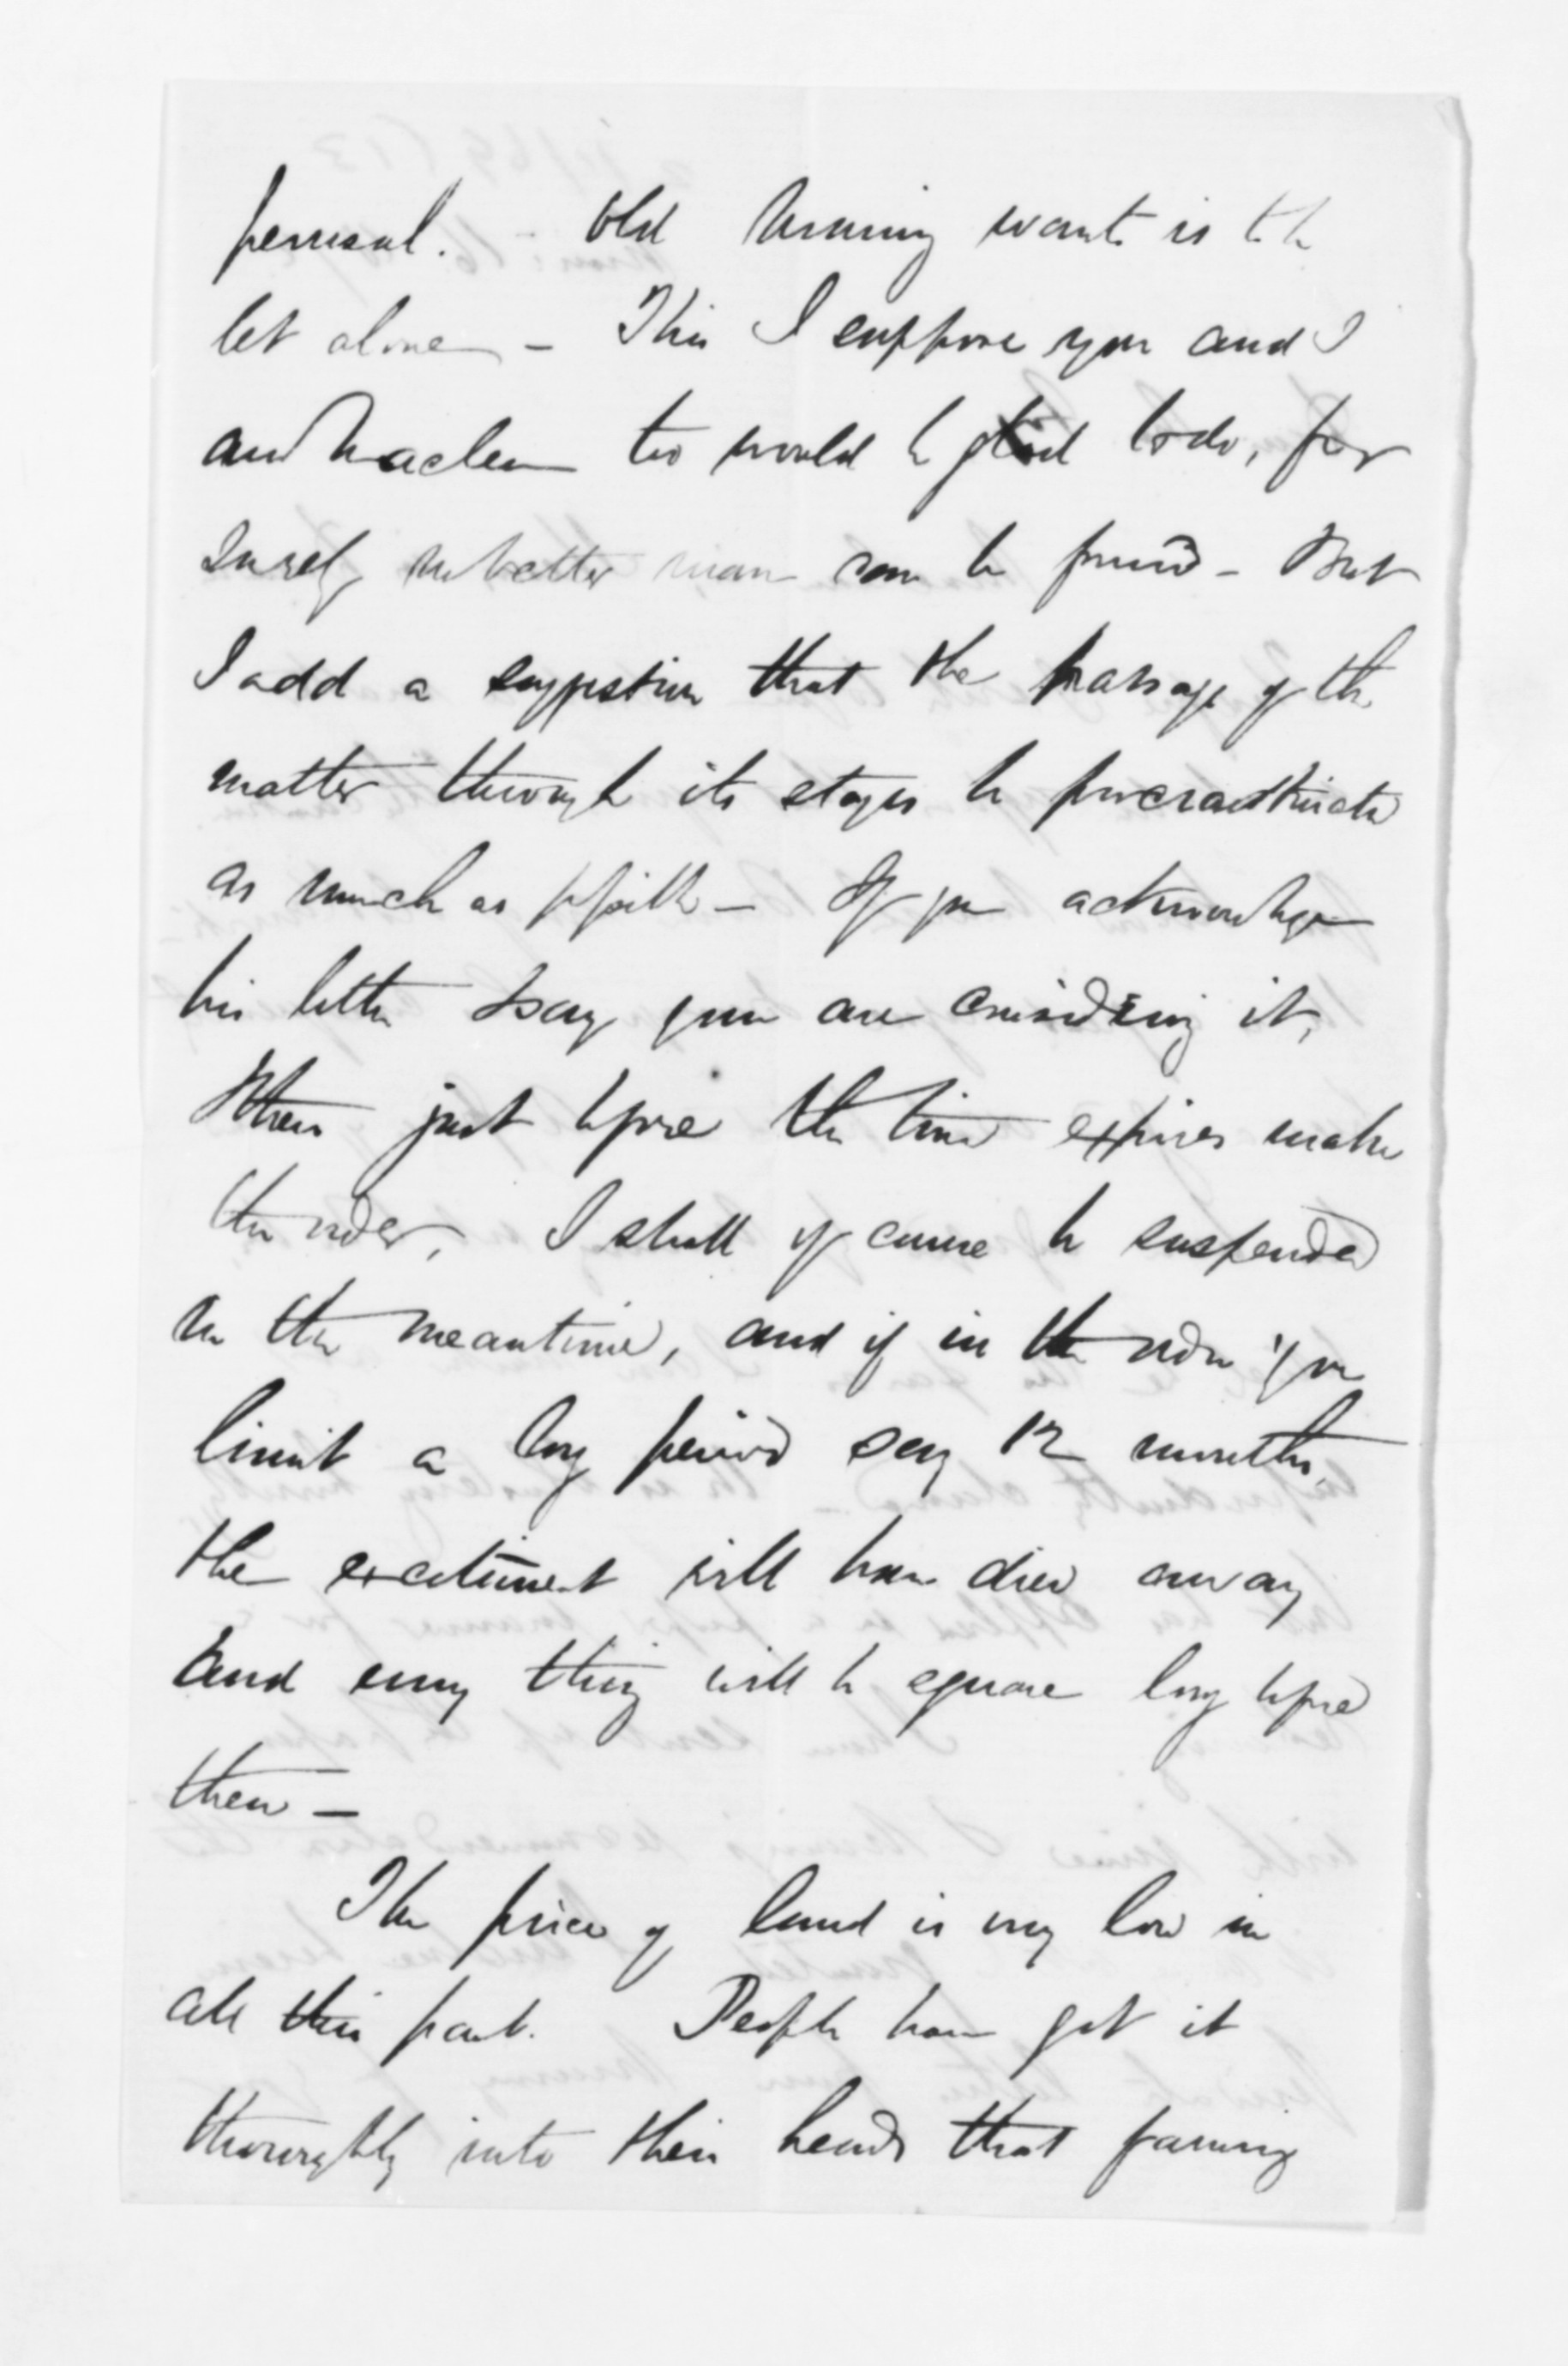 perusal. - Old wants is to be
let alone - This I suppose you and I
and Maclean too would be glad to do, for
surely no better man can be found - But
I add a suggestion that the passage of the
matter through its stages be procrastinated
as much as possible - If you acknowledge
his letter say you are considering it,
Then just before the time expires make
the order. I shall of course be suspended
in the meantime, and if in the order you
limit a long period say 12 months,
the excitement will have died away
and every thing will be square long before
then -
The price of land is very low in
all this part. People have got it
thoroughly into their heads that farming